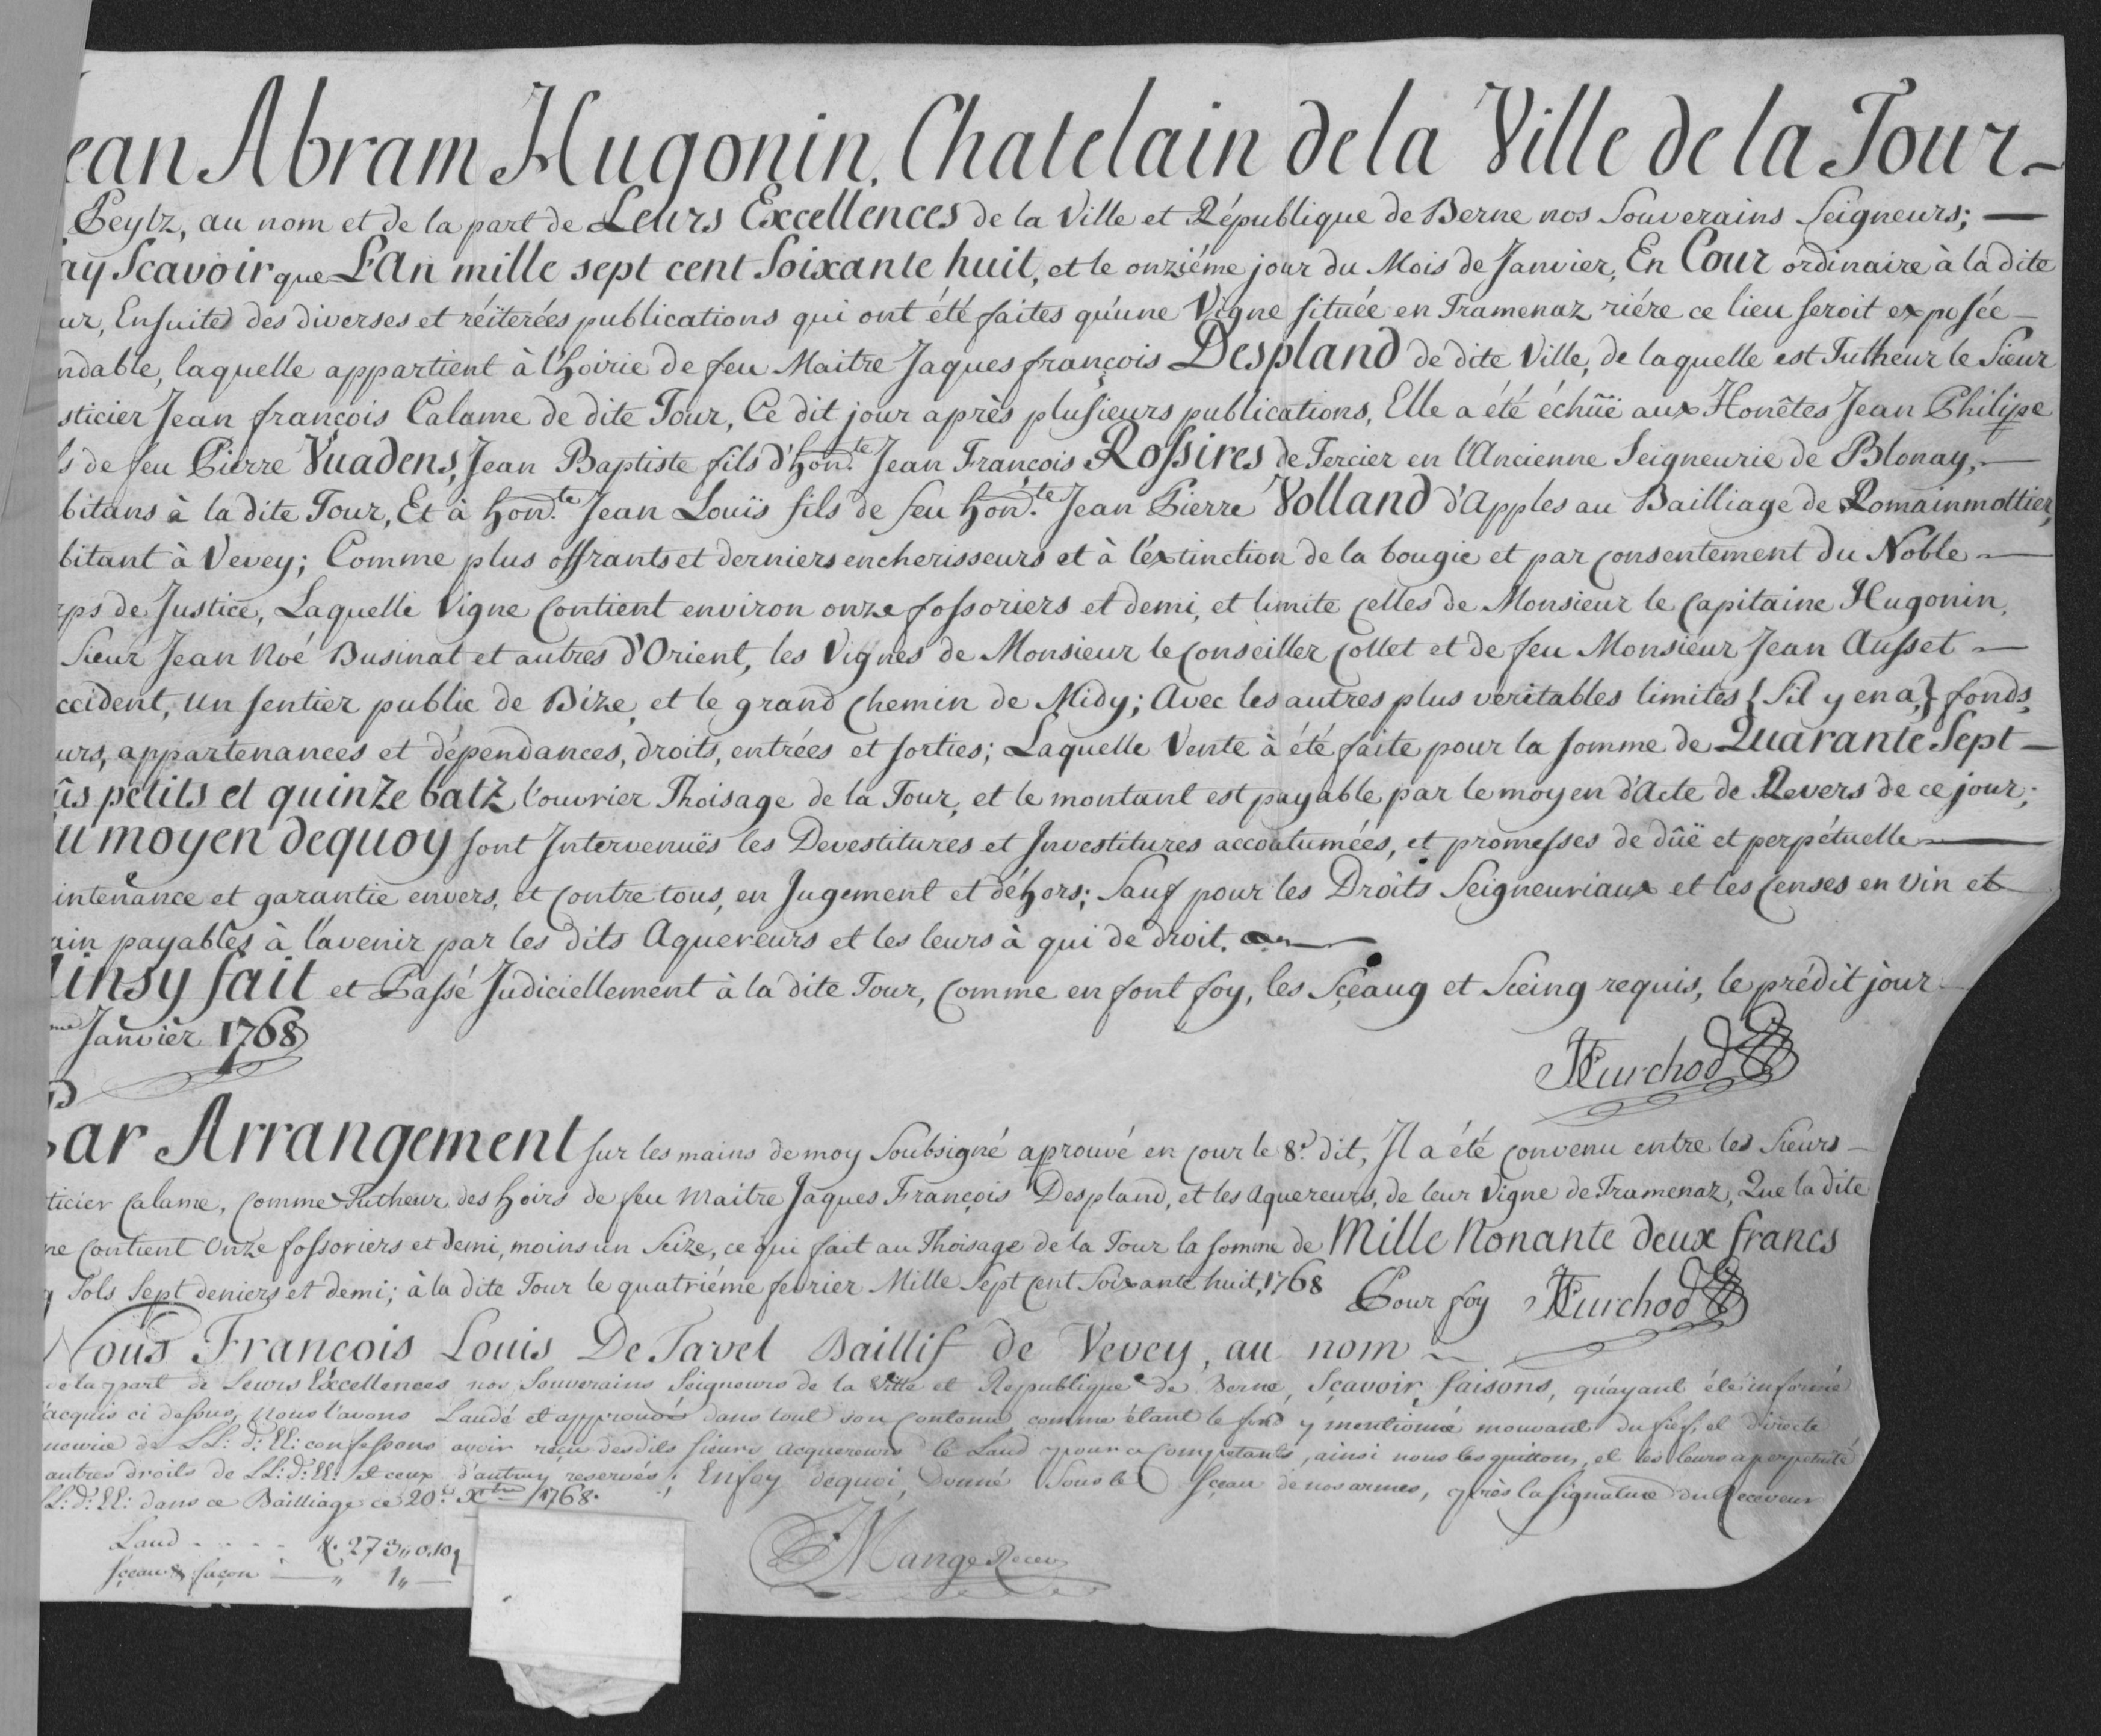 ean Abram Hugonin, Chatelain de la Ville de la Tour
Peylz, au nom et de la part de Leurs Excellences de la Ville et République de Berne nos Souverains Seigneurs;
ay Scavoir que L'An mille sept cent Soixante huit, et le onziéme jour du Mois de Janvier, En Cour ordinaire à la dite
ur, Ensuites des diverses et réiterées publications qui ont été faites qu'une Vigne située en Tramenaz riére ce lieu seroit exposée
ndable, laquelle appartient à l'hoirie de feu Maitre Jaques françois Despland de dite Ville, de laquelle est Tutheur le Sieur
sticier Jean françois Calame de dite Tour, Ce dit jour après plusieurs publications, Elle a été échûë aux Honêtes Jean Philippe
ls de feu Pierre Vuadens, Jean Baptiste fils d'hon.te Jean François Rossires de Tercier en l'Ancienne Seigneurie de Blonay,
bitans à la dite Tour, Et à hon.te Jean Louïs fils de feu hon.te Jean Pierre Volland d'Apples au Bailliage de Romainmottier,
bitant à Vevey; Comme plus offrants et derniers encherisseurs et à l'extinction de la bougie et par consentement du Noble
rps de Justice, Laquelle Vigne Contient environ onze fossoriers et demi, et limite celles de Monsieur le Capitaine Hugonin,
Sieur Jean Noé Businat et autres d'Orient, les Vignes de Monsieur le Conseiller Collet et de feu Monsieur Jean Ausset
ccident, un sentier public de Bize, et le grand Chemin de Midy; Avec les autres plus veritables limites {S'il y en a,} fonds,
urs, appartenances et dépendances, droits, entrées et sorties; Laquelle Vente à été faite pour la somme de Quarante Sept
ûs petits et quinze batz l'ouvrier Thoisage de la Tour, et le montant est payable par le moyen d'Acte de Revers de ce jour;
u moyen dequoy sont Intervenuës les Devestitures et Investitures accoutumées, et promesses de dûë et perpétuelle
intenance et garantie envers, et Contre tous, en Jugement et déhors; Sauf pour les Droits Seigneuriaux et les Censes en Vin et
ain payables à l'avenir par les dits Aquereurs et les leurs à qui de droit.
Ainsy fait et Passé Judiciellement à la dite Tour, Comme en font foy, les Sçeaug et Sceing requis, le prédit jour
me Janvier 1768
Curchod
Par Arrangement sur les mains de moy Soubsigné aprouvé en Cour le 8.e dit, Il a été convenu entre les Sieurs
ticier Calame, Comme Tutheur des hoirs de feu Maitre Jaques François Despland, et les Aquereurs, de leur Vigne de Tramenaz, Que la dite
ne Contient Onze fossoriers et demi, moins un Seize, ce qui fait au Thoisage de la Tour la somme de Mille Nonante deux francs
Sols Sept deniers et demi; à la dite Tour le quatriéme fevrier Mille Sept Cent Soixante huit, 1768 Pour foy Curchod
Nous François Louis De Tavel Baillif de Vevey, au nom
de la part de Leurs Excellences nos Souverains Seigneurs de la Ville et Republique de Berne, Sçavoir faisons, qu'ayant été informé
acquis ci dessus, Nous l'avons Laudé et approuvé dans tout son Contenu comme étant le fond y mentionné mouvant du fief, et directe
de LL: d: EE: confessons avoir reçu desdits Sieurs Acquereurs le Laud pour ce Competants, ainsi nous les quittons, et les leurs a perpetuité
autres droits de LL: d: EE: et ceux d'autruy reservés; En foy dequoi, Donné Sous le Sceau de nos armes, après la signature du Receveur
LL: d: EE: dans ce Bailliage ce 20.e Xbre 1768.
Laud - - - - 273,, 0.10
Sçeau & façon — ,, 1,, —
Mange Recev